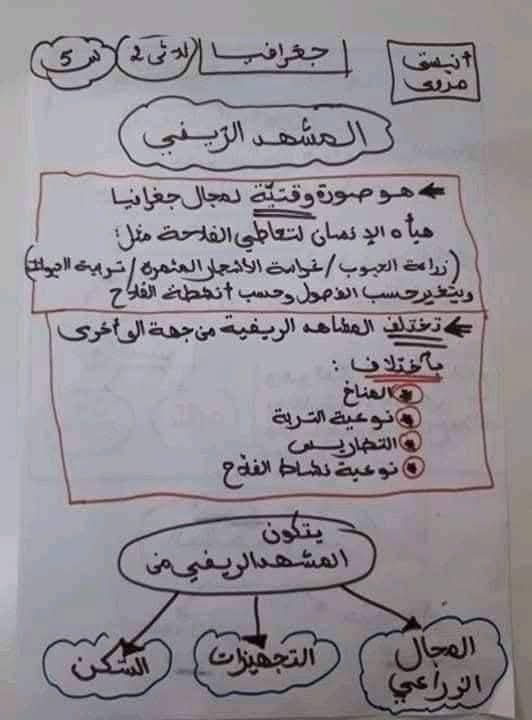 أنيستي
مروى
جغرافيا
ثلاثي 2
س 5
المشهد الريفي
هو صورة وقتيّة لمجال جغرافيا
هيأه الإنسان لتعاطي الفلاحة مثل:
(زراعة الحبوب / غراسة الأشجار المثمرة / تربية الحيوانات)
ويتغير حسب الفصول وحسب أنشطة الفلاح
تختلف المشاهد الريفية من جهة الى أخرى
بأختلاف :
المناخ
نوعية التربة
التضاريس
نوعية نشاط الفلاح
يتكون
المشهد الريفي من
المجال
الزراعي
التجهيزات
السّكن